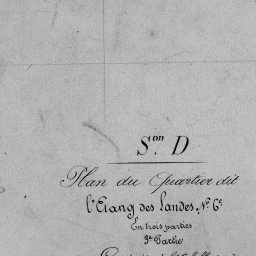 Son D
Plan du Quartier dit
l'Etang des Landes, N.º 6ᵉ
En trois parties
3ᵉ Partie